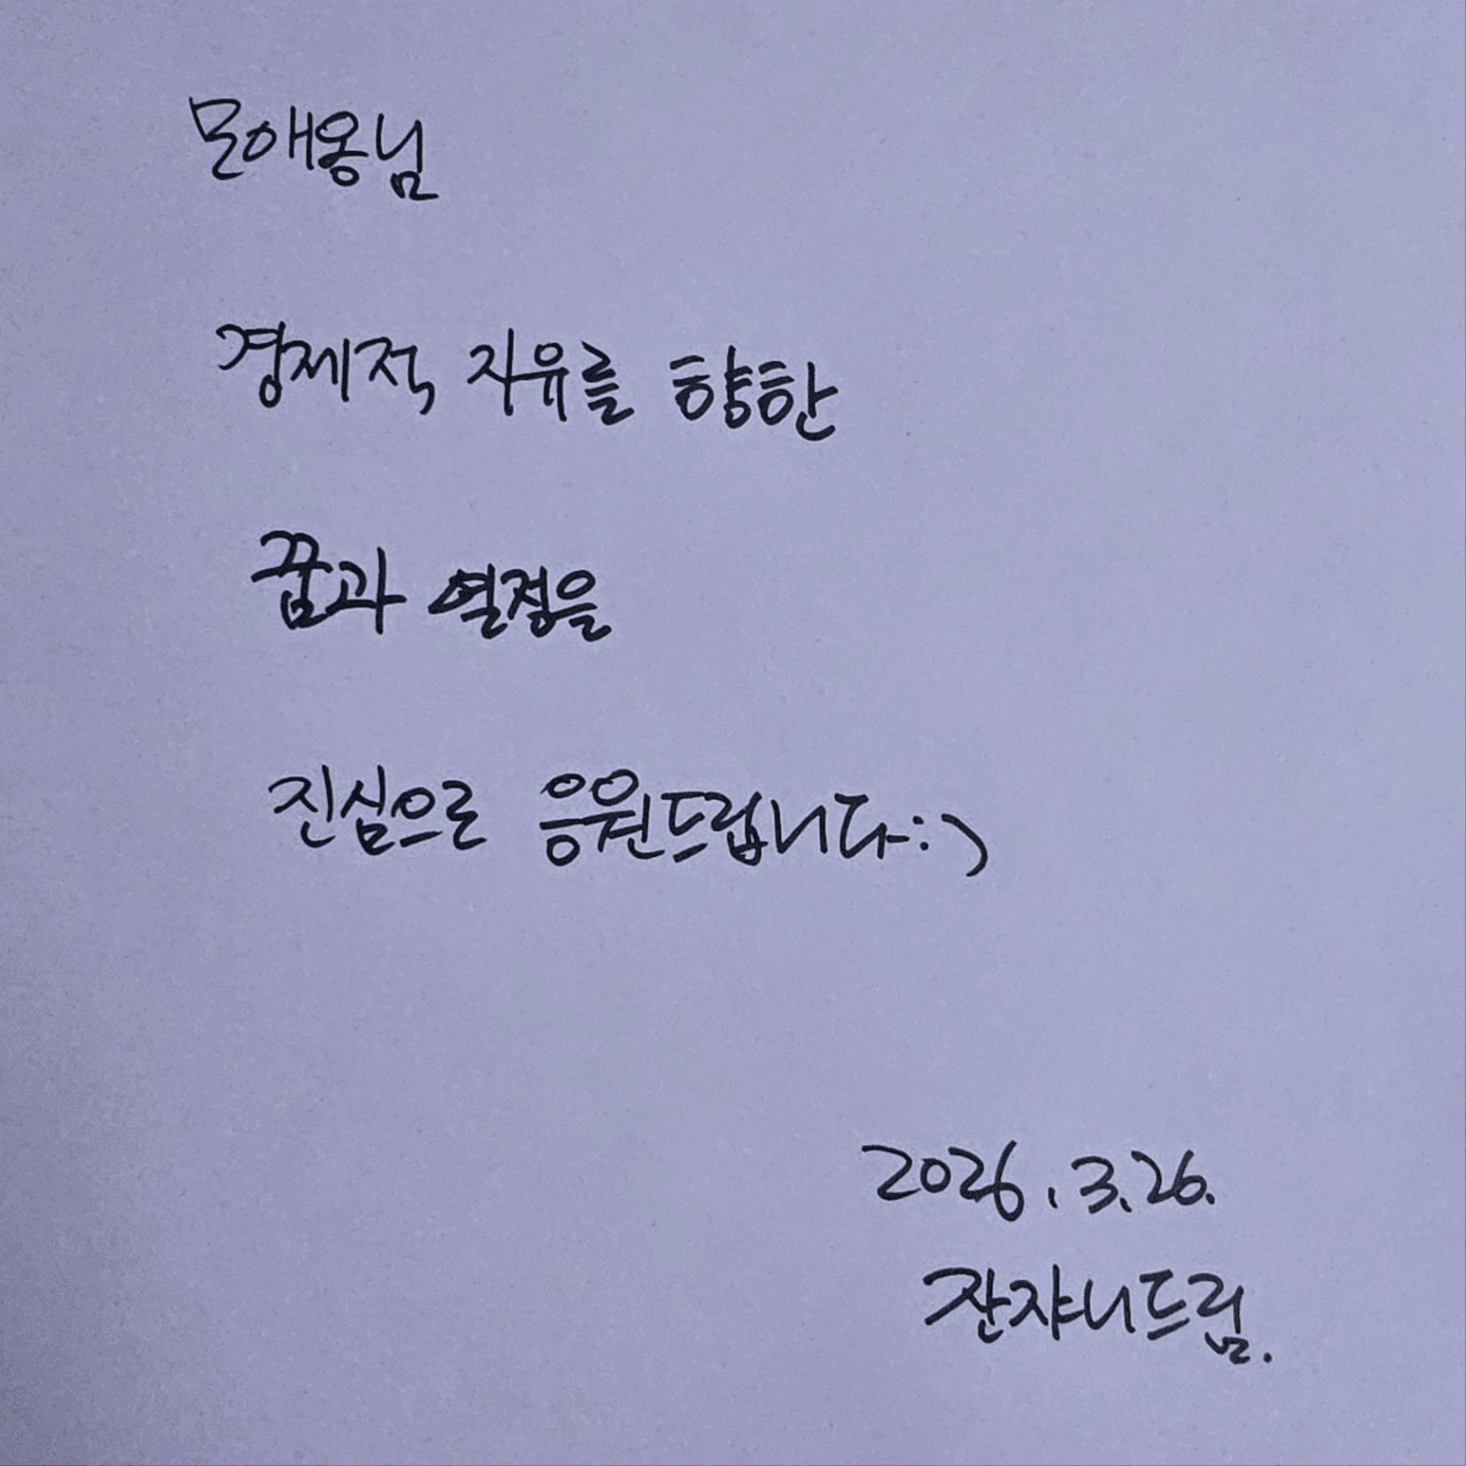 모애옹님
경제적 자유를 향한
꿈과 열정을
진심으로 응원드립니다:)
2026.3.26.
잔쟈니드림.